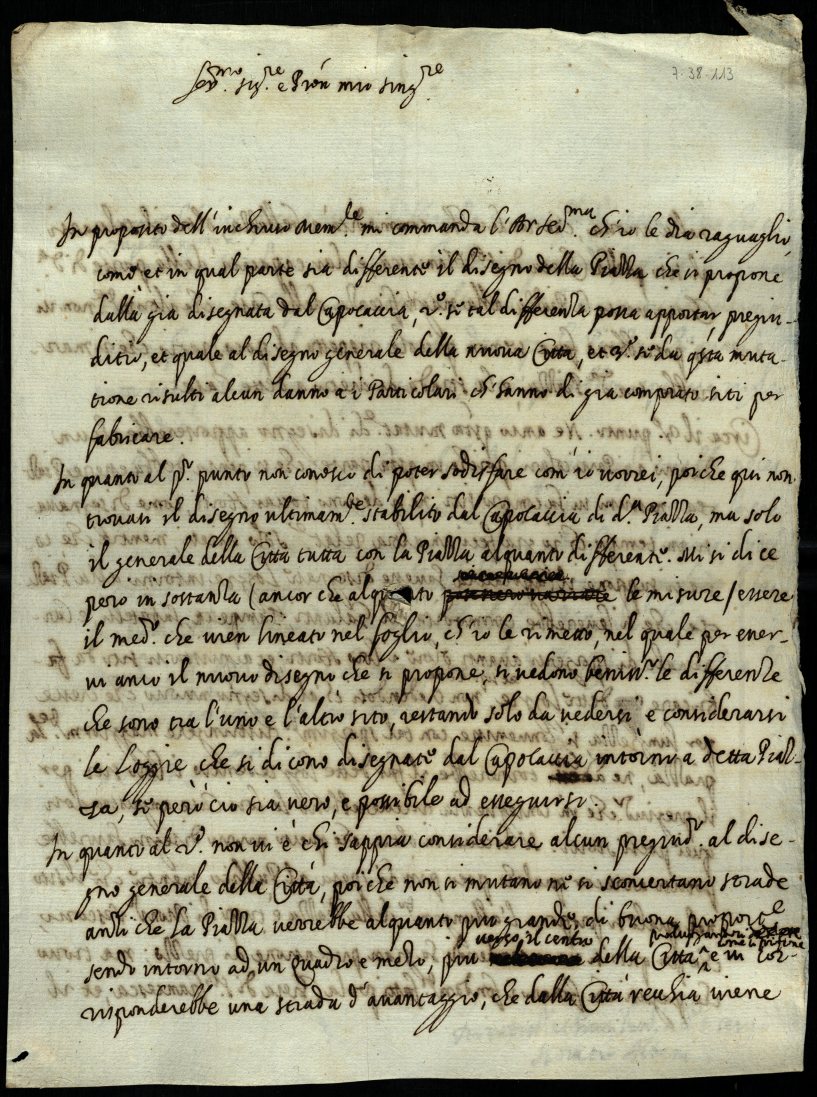 7·38·113
Ser.mo Sig.re e Pron mio sing.re
In proposito dell'inchiuso Mem.le mi commanda l'A. V. Ser.ma ch'io le dia raguaglio,
come et in qual parte sia differente il disegno della Piazza che si propone
dalla già disegnata dal Capocaccia, 2.o se tal differenza possa apportar pregiu-
ditio, et quale al disegno generale della nuova Città, et 3.o se da q.sta muta-
tione risulti alcun danno a i Particolari ch'hanno di già comprato siti per
fabricare.
In quanto al p.o punto non conosco di poter sodisfare com'io vorrei, poiche qui non
trovasi il disegno ultimam.te stabilito dal Capocaccia di d.a Piazza, ma solo
il generale della Città tutta con la Piazza alquanto differente. Mi si dice
però in sostanza (ancor che alquanto le misure / essere
il med.o che vien lineato nel foglio, ch'io le rimetto, nel quale per esser-
vi anco il nuovo disegno che si propone, si vedono beniss.o le differenze
che sono tra l'uno e l'altro sito, restando solo da vedersi e considerarsi
le Loggie che si dicono disegnate dal Capocaccia intorno a detta Piaz-
za, se però ciò sia vero, e possibile ad esseguirsi.
In quanto al 2.o non vi è chi sappia considerare alcun pregiud.o al dise-
gno generale della Città, poiche non si mutano nè si sconcertano strade
anzi che la Piazza verrebbe alquanto più grande, di buona proport.e
verso il centro
sendo intorno ad un Quadro e mezo, più della Città e in cor-
risponderebbe una strada d'avantaggio, che dalla Città vecchia viene